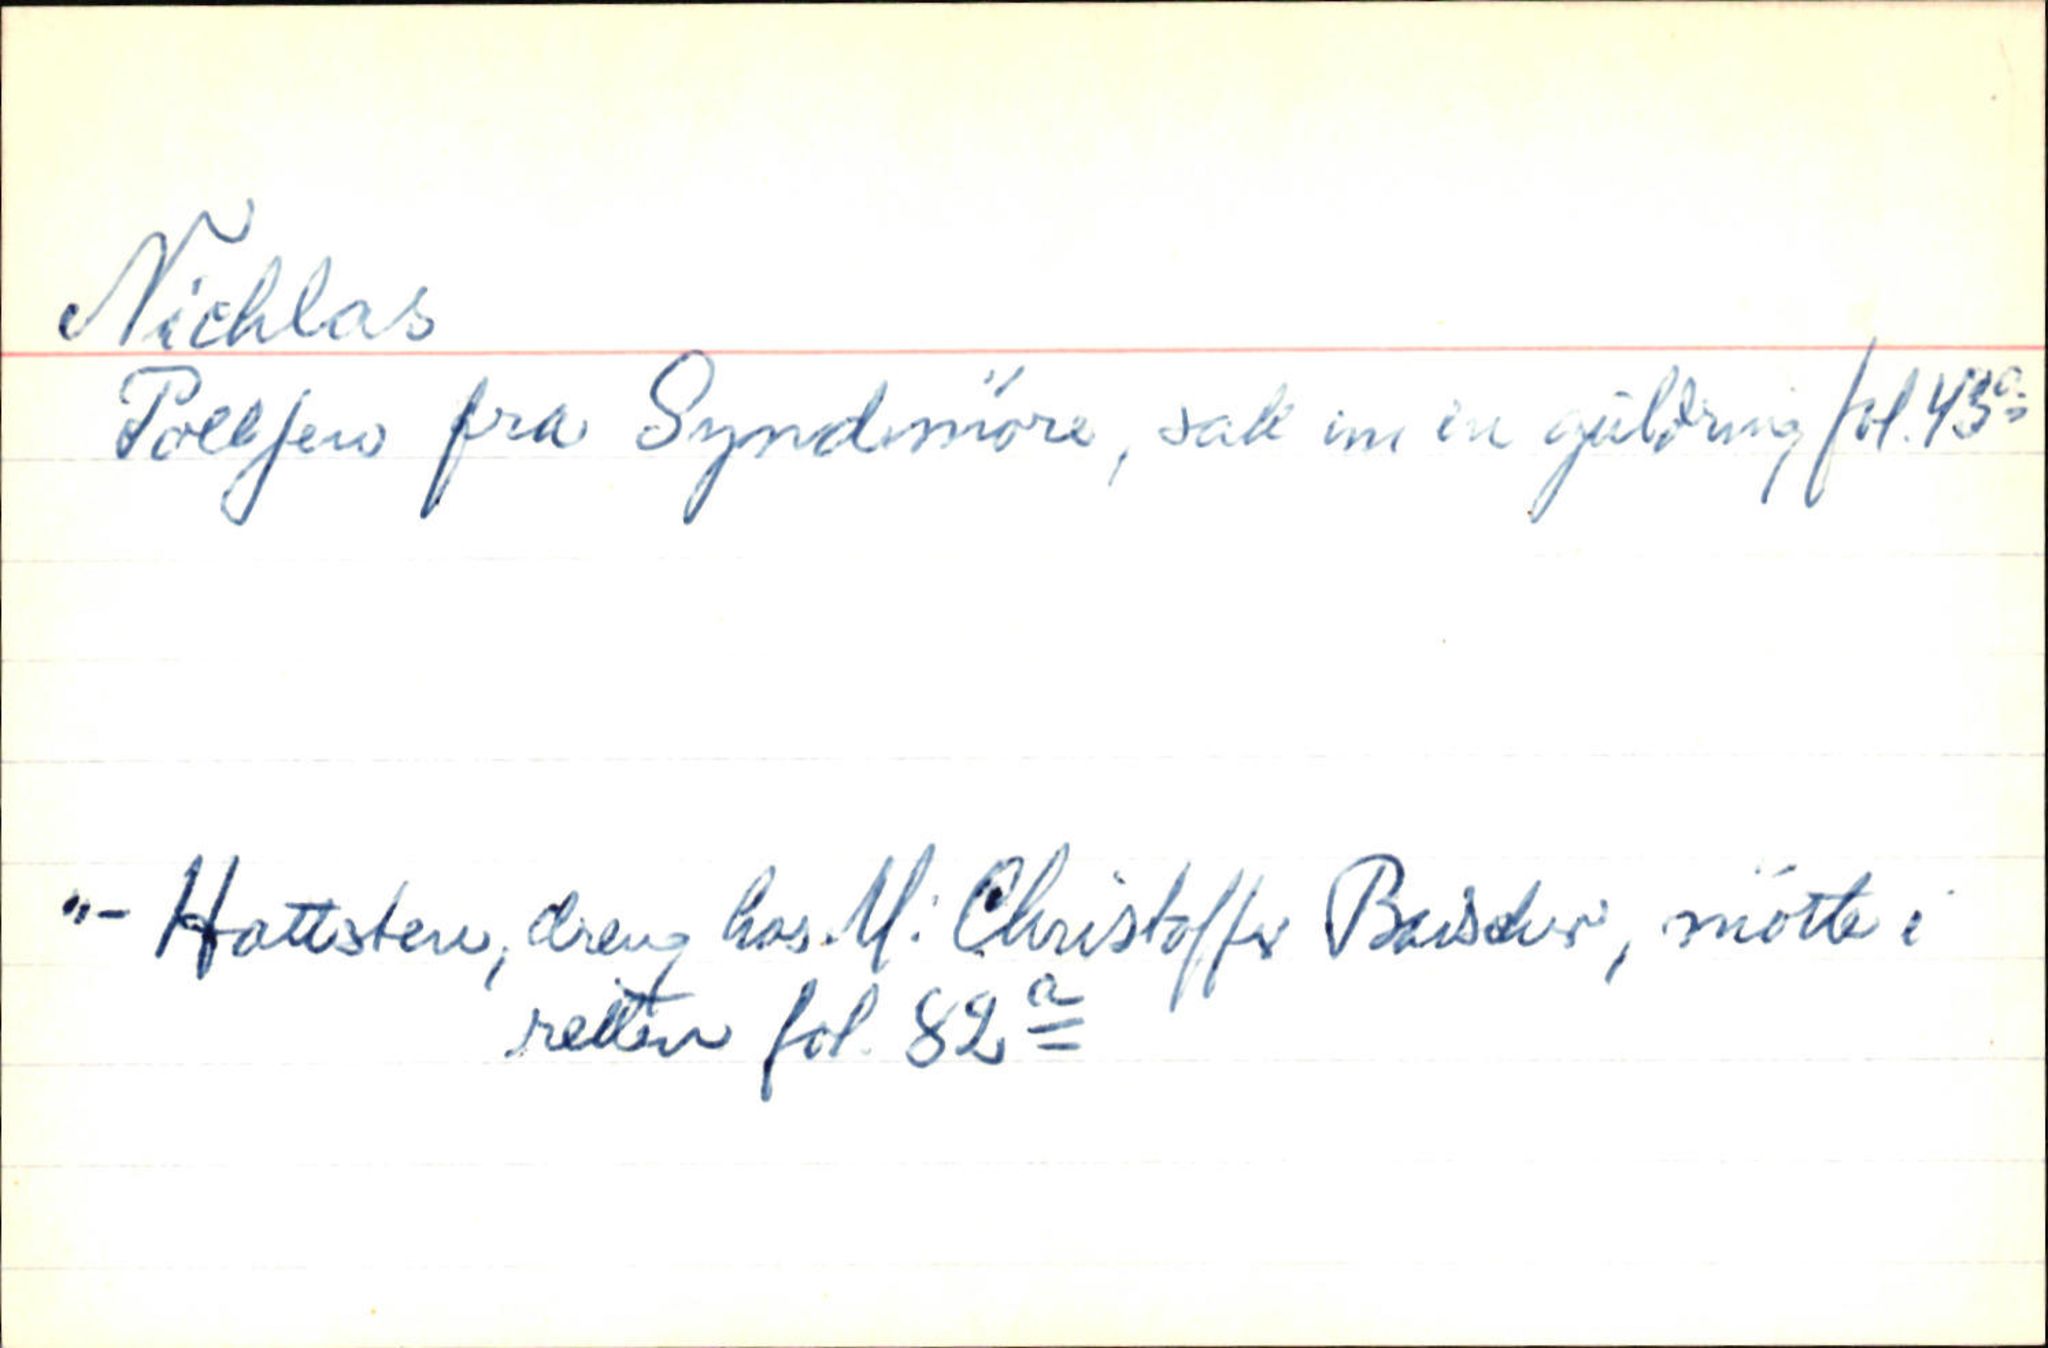 Nichlas
Pollsen fra Syndmöre, sak om en guldring fol. 43a
"- Hattsten, dreng hos M: Christoffer, mötte i
retten fol. 82a